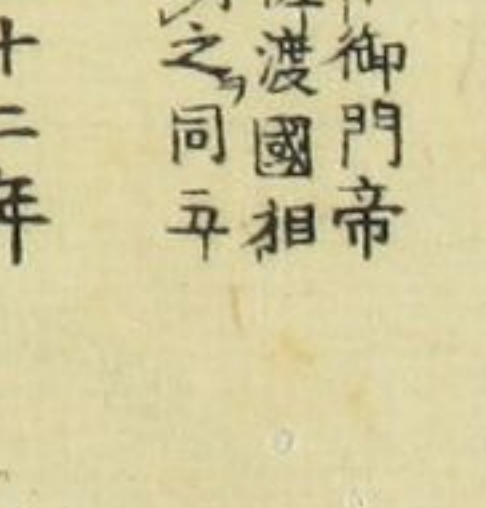 御門帝
渡國相
之同五
十二年